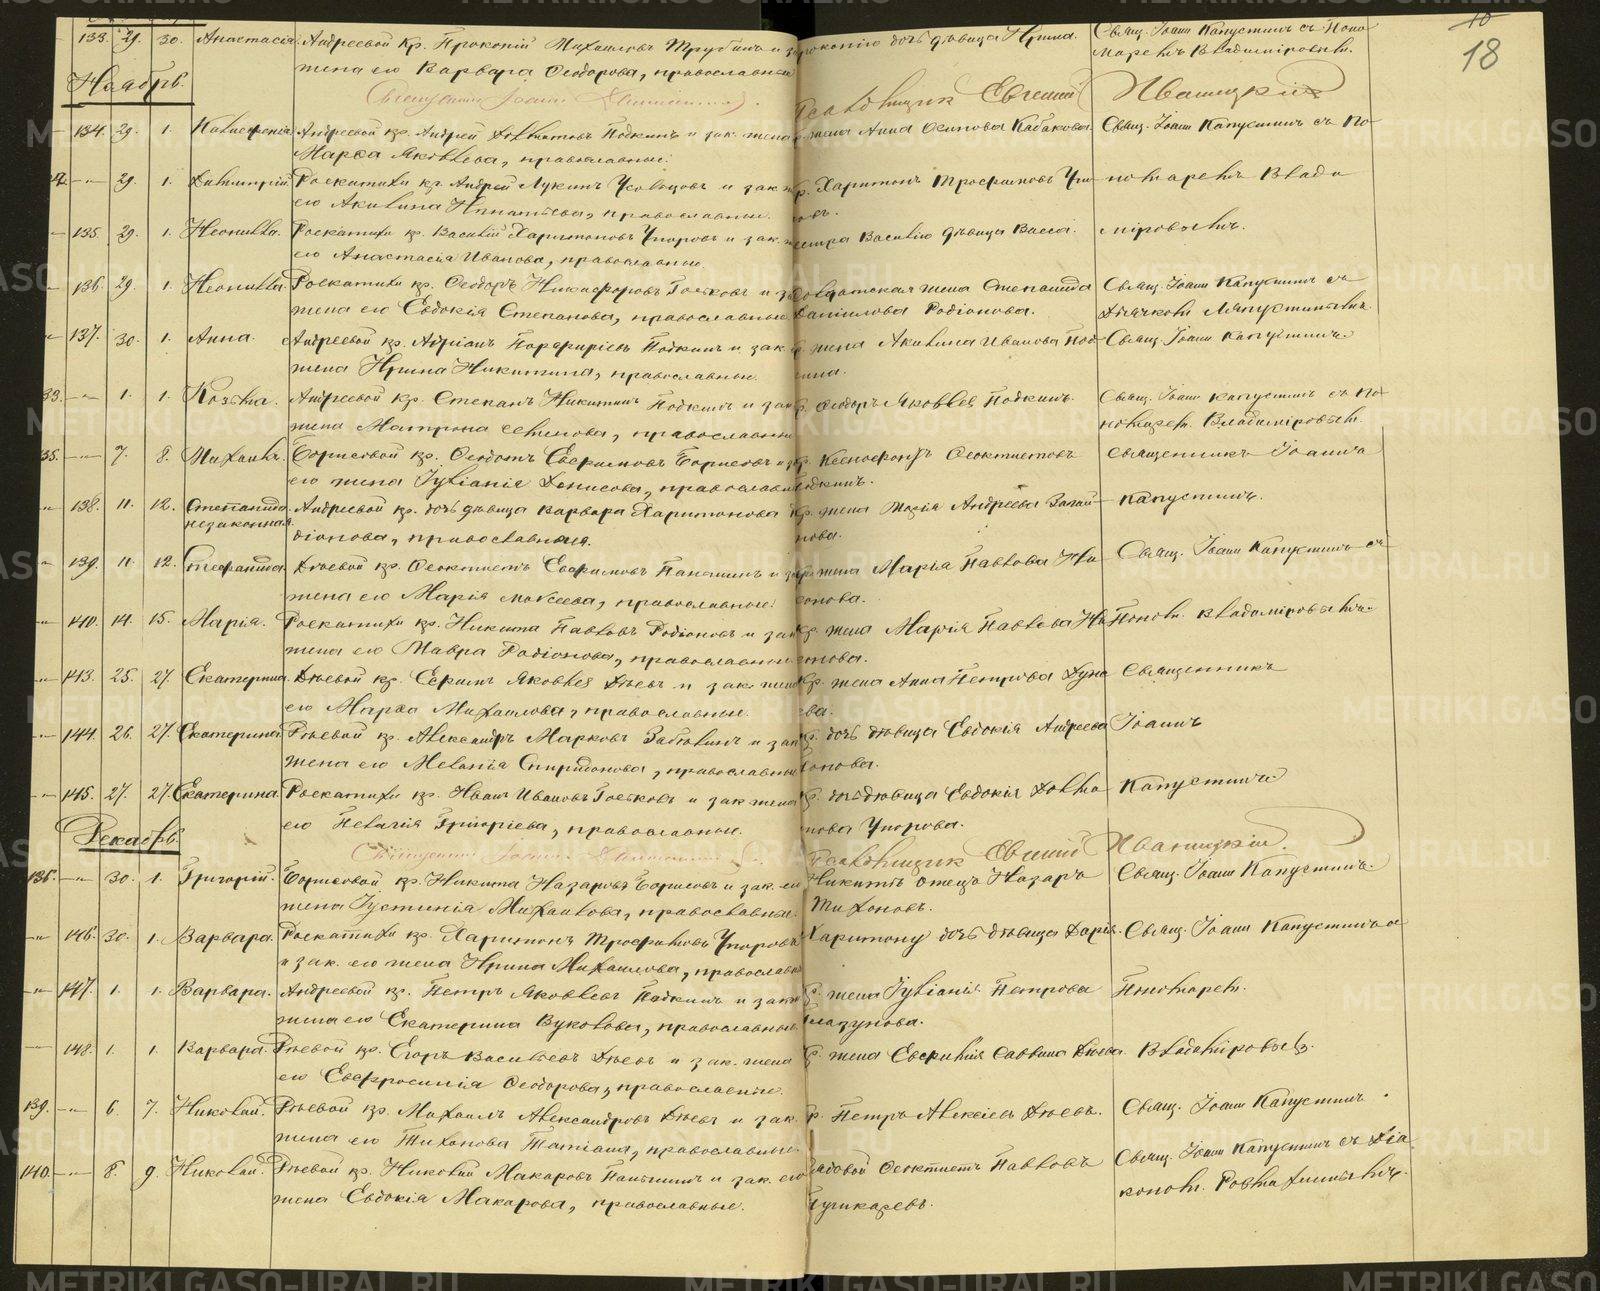 18
133. 29. 30. Анастасія. Андреевой кр. Прокопій Михаиловъ Трубинъ и за
жена его Варвара Ѳеодорова, православные
Прокопію дочь дѣвица Ирина.
Свящ. Іоанн Капустинъ съ Поно
маремъ Владиміровымъ.
Ноябрь.
Священникъ Іоаннъ
Псаломщикъ Евгеній Иваницкій
134. 29. 1. Андреевой кр. Андрей Подкинъ и зак. жена
Марѳа Яковлева, православные.
жена Анна Осипова Кабакова
Свящ. Іоанн Капустинъ съ По
29. 1. Димитрій. Роскатихи кр. Андрей Лукинъ и зак
его Акилина Игнатьева, православные.
Харитонъ Трофимовъ Упо
ровъ.
номаремъ Влади
135. 29. 1. Неонилла. Роскатихи кр. Василій Харитоновъ Упоровъ и зак.
его Анастасія Иванова, православные.
сестра Василію дѣвица Васса.
міровымъ.
136. 29. 1. Неонилла. Роскатихи кр. Ѳеодоръ Никифоровъ и за
жена его Евдокія Степанова, православные
солдатская жена Степанида
Даниилова Родіонова.
Свящ. Іоанн Капустинъ съ
137. 30. 1. Анна. Андреевой кр. Адріанъ Порфирьевъ Подкинъ и зак.
жена Ирина Никитина, православные.
жена Акилина Иванова Под
кина.
Свящ. Іоанн Капустинъ
33. 1. 1. Козьма. Андреевой кр. Степанъ Никитинъ Подкинъ и зак
жена Матрона Семенова, православные
Ѳеодоръ Яковлев Подкинъ.
Свящ. Іоанн Капустинъ съ По
номарем. Владиміровым.
35. 7. 8. Михаилъ. Борисовой кр. Ѳедотъ Евфимовъ Борисовъ и за
его жена Іуліанія Денисова, православны
кр. Ксенофонтъ Ѳеоктистовъ
Подкинъ.
Священникъ Іоаннъ
138. 11. 12. Степанида Андреевой кр. дочь дѣвица Варвара Харитонова
незаконная.
діонова, православная.
кр. жена Марія Андреева
нова.
Капустинъ.
139. 11. 12. Стефанида. Дѣевой кр. Ѳеоктистъ Евфимовъ Паньшинъ и за
жена его Марія Моисеева, православные.
жена Марія Павлова Ни
конова.
Свящ. Іоанн Капустинъ съ
140. 14. 15. Марія. Роскатихи кр. Никита Павловъ Родіоновъ и зак
жена его Мавра Родіонова, православные
кр. жена Марія Павлова Ни
конова.
Поном. Владиміровымъ.
143. 25. 27. Екатерина. Дѣевой кр. Ефимъ Яковлев Дѣевъ и зак. жена
его Марѳа Михаилова, православные.
кр. жена Анна Петрова
ева.
Священникъ
144. 26. 27. Екатерина Дѣевой кр. Александръ Марковъ и зак
жена его Меланія Спиридонова, православные
кр. дочь дѣвица Евдокія Андреева
Іоаннъ
145. 27. 27. Екатерина. Роскатихи кр. Иван Ивановъ и зак. жена
его Пелагія Григоріева, православные.
кр. дочь дѣвица Евдокія
нова Упорова.
Капустинъ
Декабрь.
Священникъ Іоаннъ
Псаломщикъ Евгеній Иваницкій.
136. 30. 1. Григорій. Борисовой кр. Никита Назаровъ Борисовъ и зак. ею
жена Іустинія Михаилова, православные.
Никитѣ отецъ Назаръ
Тихоновъ.
Свящ. Іоанн Капустинъ.
146. 30. 1. Варвара. Роскатихи кр. Харитонъ Трофимовъ Упоровъ
и зак. его жена Ирина Михаилова, православн
Харитону дочь дѣвица Дарія.
Свящ. Іоанн Капустинъ с
147. 1. 1. Варвара. Андреевой кр. Петръ Яковлевъ Подкинъ и зак
жена его Екатерина Вуколова, православны
жена Іуліанія Петрова
Глазунова.
Пономарем.
148. 1. 1. Варвара. Дѣевой кр. Егоръ Васильевъ Дѣевъ и зак. жена
его Евфросинія Ѳеодорова, православные.
жена Евфимія Саввина Дѣева
Владиміровым.
139. 6. 7. Николай. Дѣевой кр. Михаилъ Александровъ Дѣевъ и зак.
жена его Тихонова Татіана, православные.
Петръ Алексѣевъ Дѣевъ.
Свящ. Іоанн Капустинъ
140. 8. 9. Николай. Дѣевой кр. Николай Макаровъ Паньшинъ и зак. его
жена Евдокія Макарова, православные.
рядовой Ѳеоктистъ Павловъ
Пушкаревъ.
Свящ. Іоанн Капустинъ съ Діа
коном.
METRIKI.GASO-URAL.RU